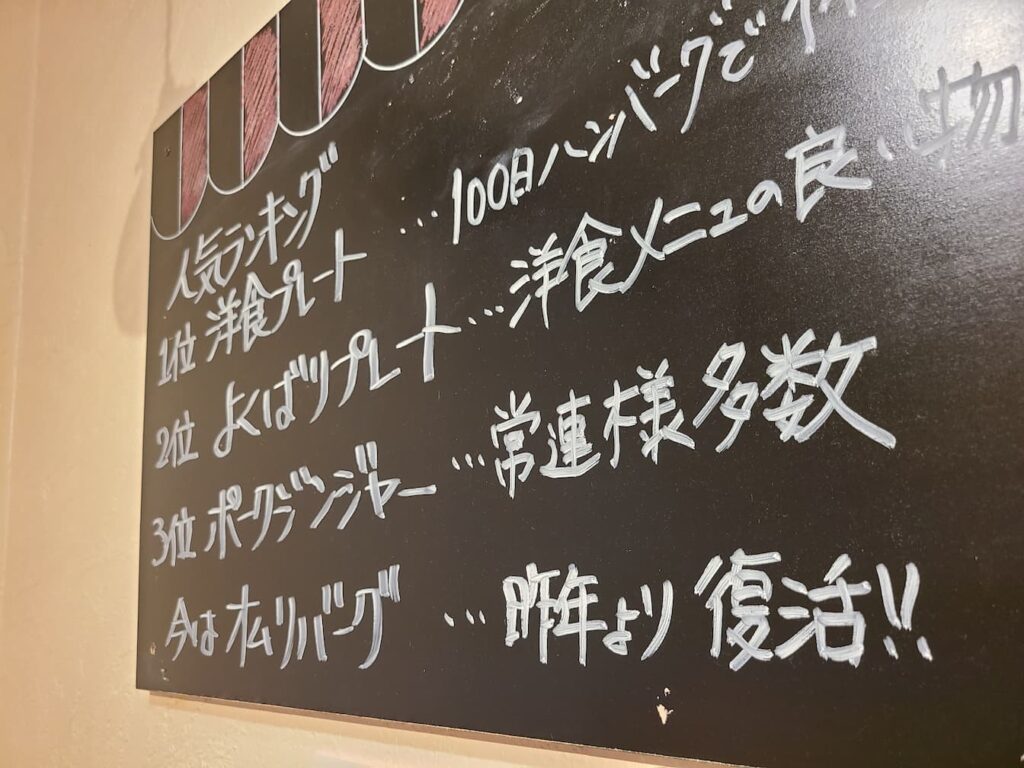 人気ランキング
1位 洋食プレート …100日ハンバーグで
2位 よくばりプレート …洋食メニュの良い物
3位 ポークジンジャー …常連様多数
今は オムリバーグ …昨年より復活!!